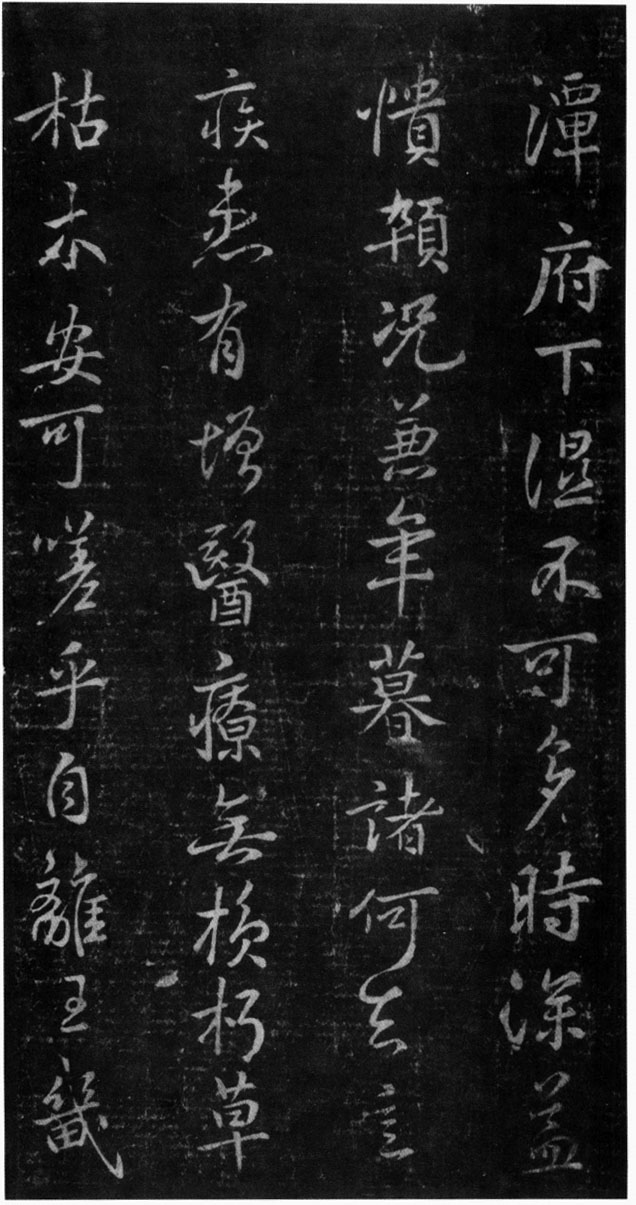 潭府下濕不可多時深益
憒顇況兼年暮諸何足言
疾患有增醫療無損朽草
枯木安可嗟乎自離王畿